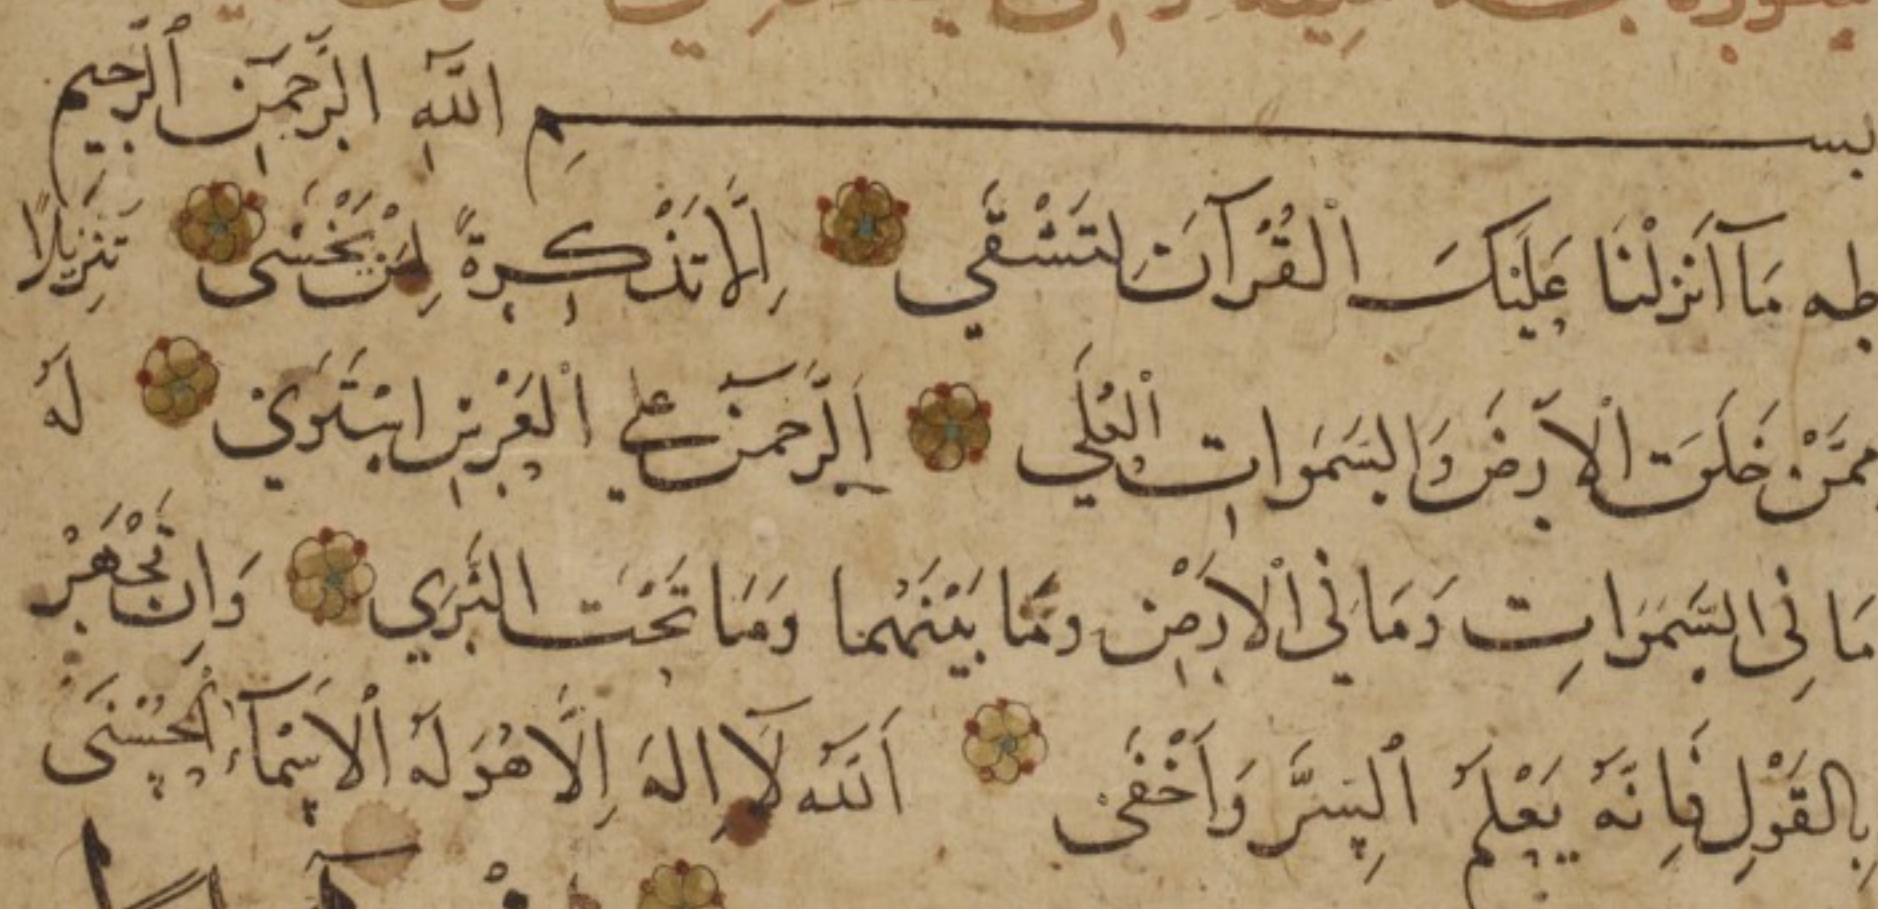 بسم الله الرحمن الرحيم
طه مَآ اَنْزَلْنَا عَلَيْكَ الْقُرْآنَ لِتَشْقَى اِلَّا تَذْكِرَةً لِمَنْ يَخْشَى تَنْزِيلًا
مِمَّنْ خَلَقَ الْاَرْضَ وَالسَّمَوَاتِ الْعُلَى اَلرَّحْمَنُ عَلَى الْعَرْشِ اسْتَوَى لَهُ
مَا فِى السَّمَوَاتِ وَمَا فِى الْاَرْضِ وَمَا بَيْنَهُمَا وَمَا تَحْتَ الثَّرَى وَاِنْ تَجْهَرْ
بِالْقَوْلِ فَاِنَّهُ يَعْلَمُ السِّرَّ وَاَخْفَى اَللهُ لَا اِلهَ اِلَّا هُوَ لَهُ الْاَسْمَآءُ الْحُسْنَى